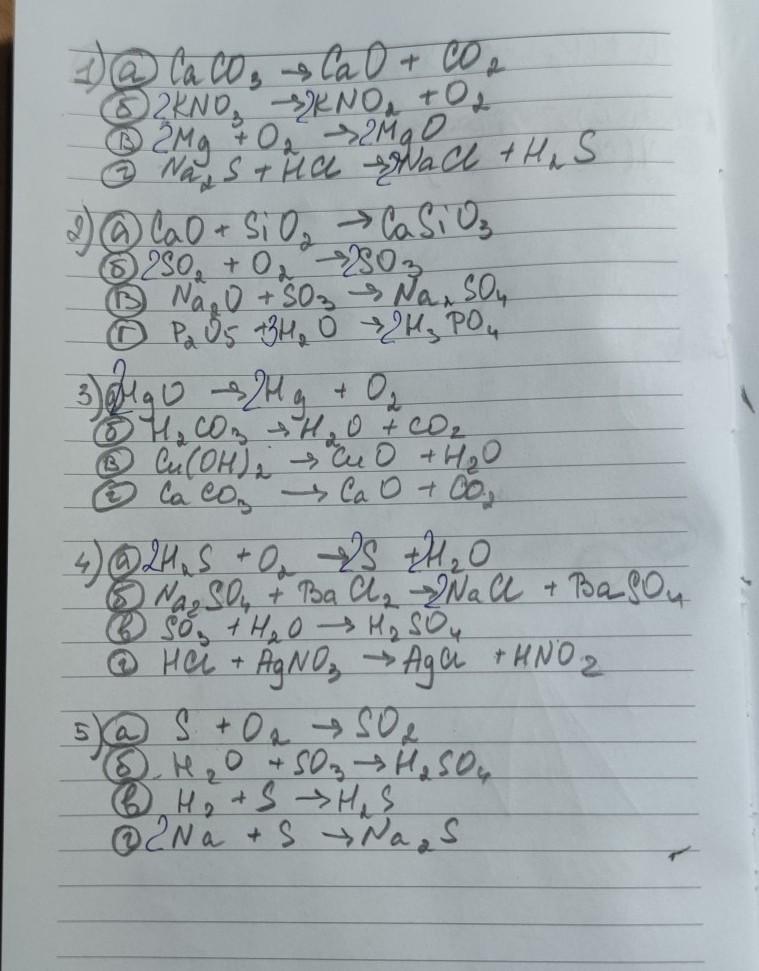 1) а) CaCO₃ → CaO + CO₂
б) 2KNO₃ → 2KNO₂ + O₂
в) 2Mg + O₂ → 2MgO
г) Na₂S + HCl → 2NaCl + H₂S
2) а) CaO + SiO₂ → CaSiO₃
б) 2SO₂ + O₂ → 2SO₃
в) Na₂O + SO₃ → Na₂SO₄
г) P₂O₅ + 3H₂O → 2H₃PO₄
3) а) 2HgO → 2Hg + O₂
б) H₂CO₃ → H₂O + CO₂
в) Cu(OH)₂ → CuO + H₂O
г) CaCO₃ → CaO + CO₂
4) а) 2H₂S + O₂ → 2S + 2H₂O
б) Na₂SO₄ + BaCl₂ → 2NaCl + BaSO₄
в) SO₃ + H₂O → H₂SO₄
г) HCl + AgNO₃ → AgCl + HNO₂
5) а) S + O₂ → SO₂
б) H₂O + SO₃ → H₂SO₄
в) H₂ + S → H₂S
г) 2Na + S → Na₂S